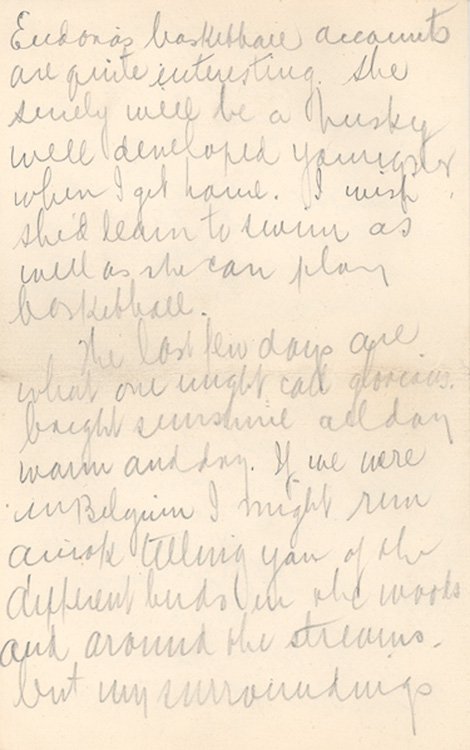 Eudora's basketball accounts
are quite interesting. She
surely will be a husky
well developed youngster
when I get home. I wish
she'd learn to swim as
well as she can play
basketball.
The last few days are
what one might call glorious.
bright sunshine all day
warm and dry. If we were
in Belgium I might run
amok telling you of the
different birds in the woods
and around the streams.
but my surroundings